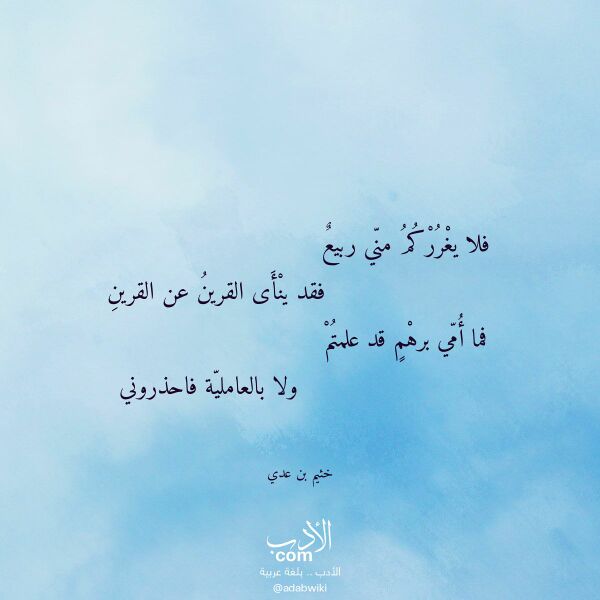 فلا يغْرُرْكُمُ منّي ربيعٌ
فقد ينْأَى القرينُ عن القرينِ
فما أُمّي برهْمٍ قد علمتُمْ
ولا بالعامليّة فاحذروني
خثيم بن عدي
الأدب
com
الأدب .. بلغة عربية
@adabwiki